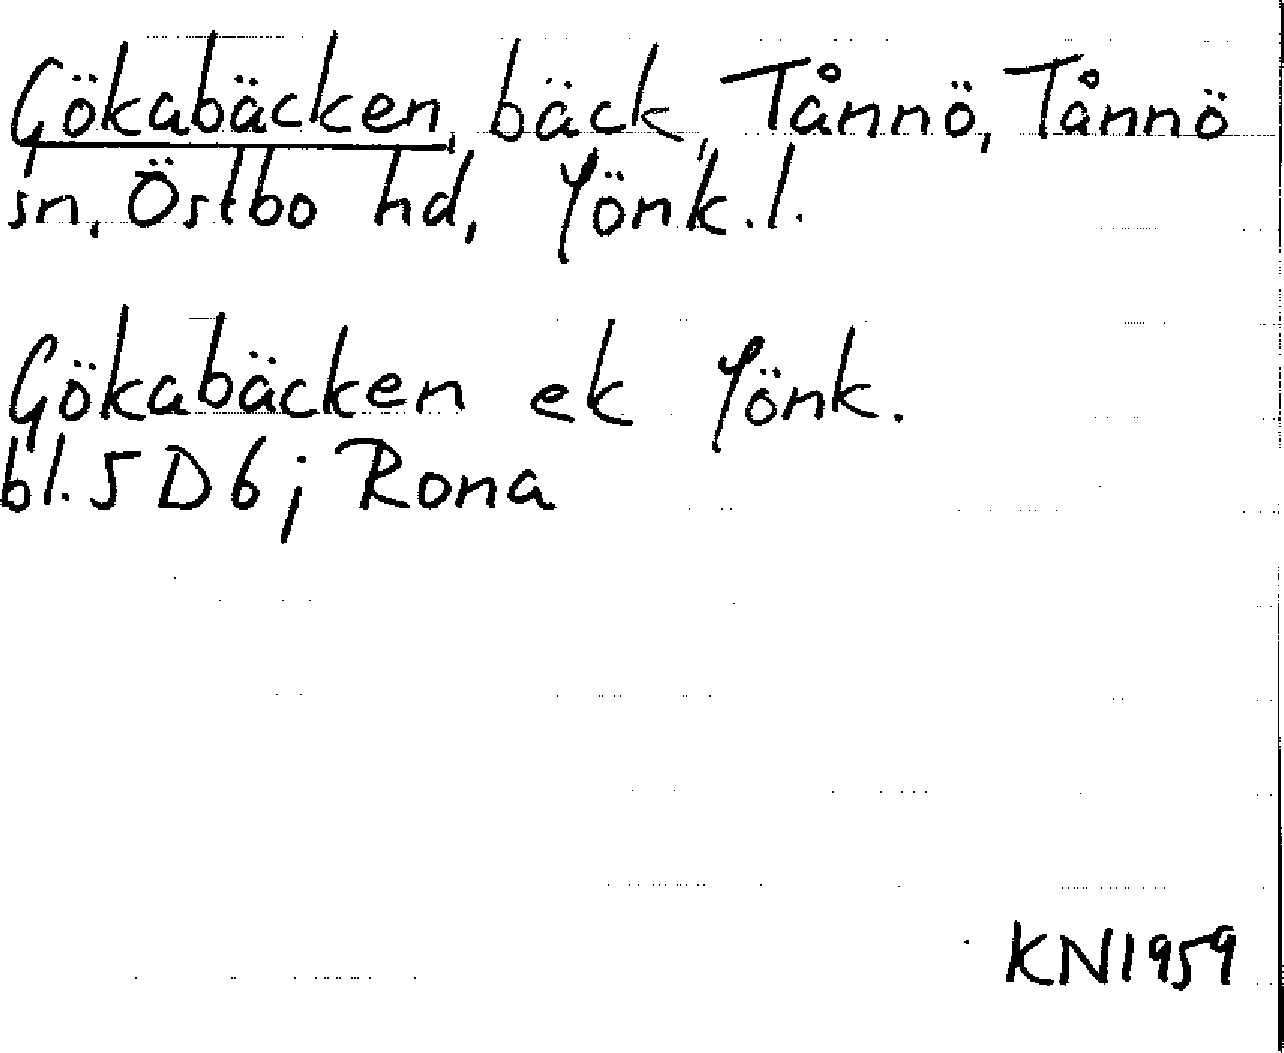 Gökabäcken, bäck, Tånnö, Tånnö
sn, Östbo hd, Jönk.l.
Gökabäcken ek Jönk.
bl. 5D6; Rona
KN1959